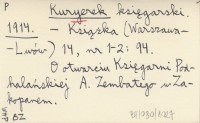 P
Kuryerek księgarski.
1914. - Książka (Warszawa-
-Lwów) 14, nr 1-2: 94.
O otwarciu Księgarni Pod-
halańskiej A. Zembatego w Za-
kopanem.
BZ